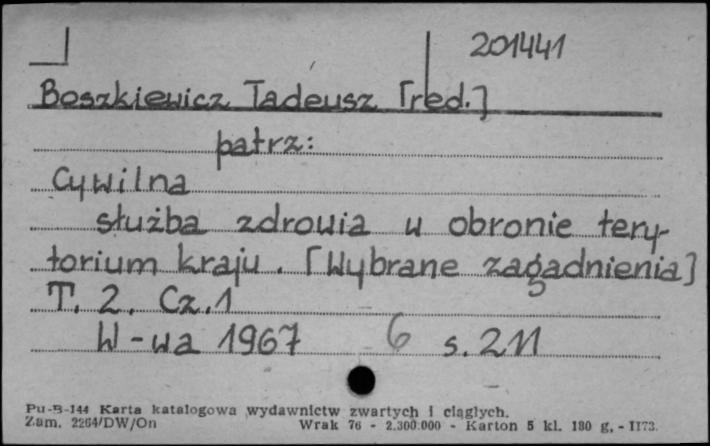 201441
Boszkiewicz Tadeusz [red.]
patrz:
Cywilna
służba zdrowia w obronie tery-
torium kraju. [Wybrane zagadnienia]
T. 2. Cz. 1
W-wa 1967 6 s. 211
Pu-B-144 Karta katalogowa wydawnictw zwartych i ciągłych.
Zam. 2264/DW/On Wrak 76 - 2.300.000 - Karton 5 kl. 180 g. - II73.